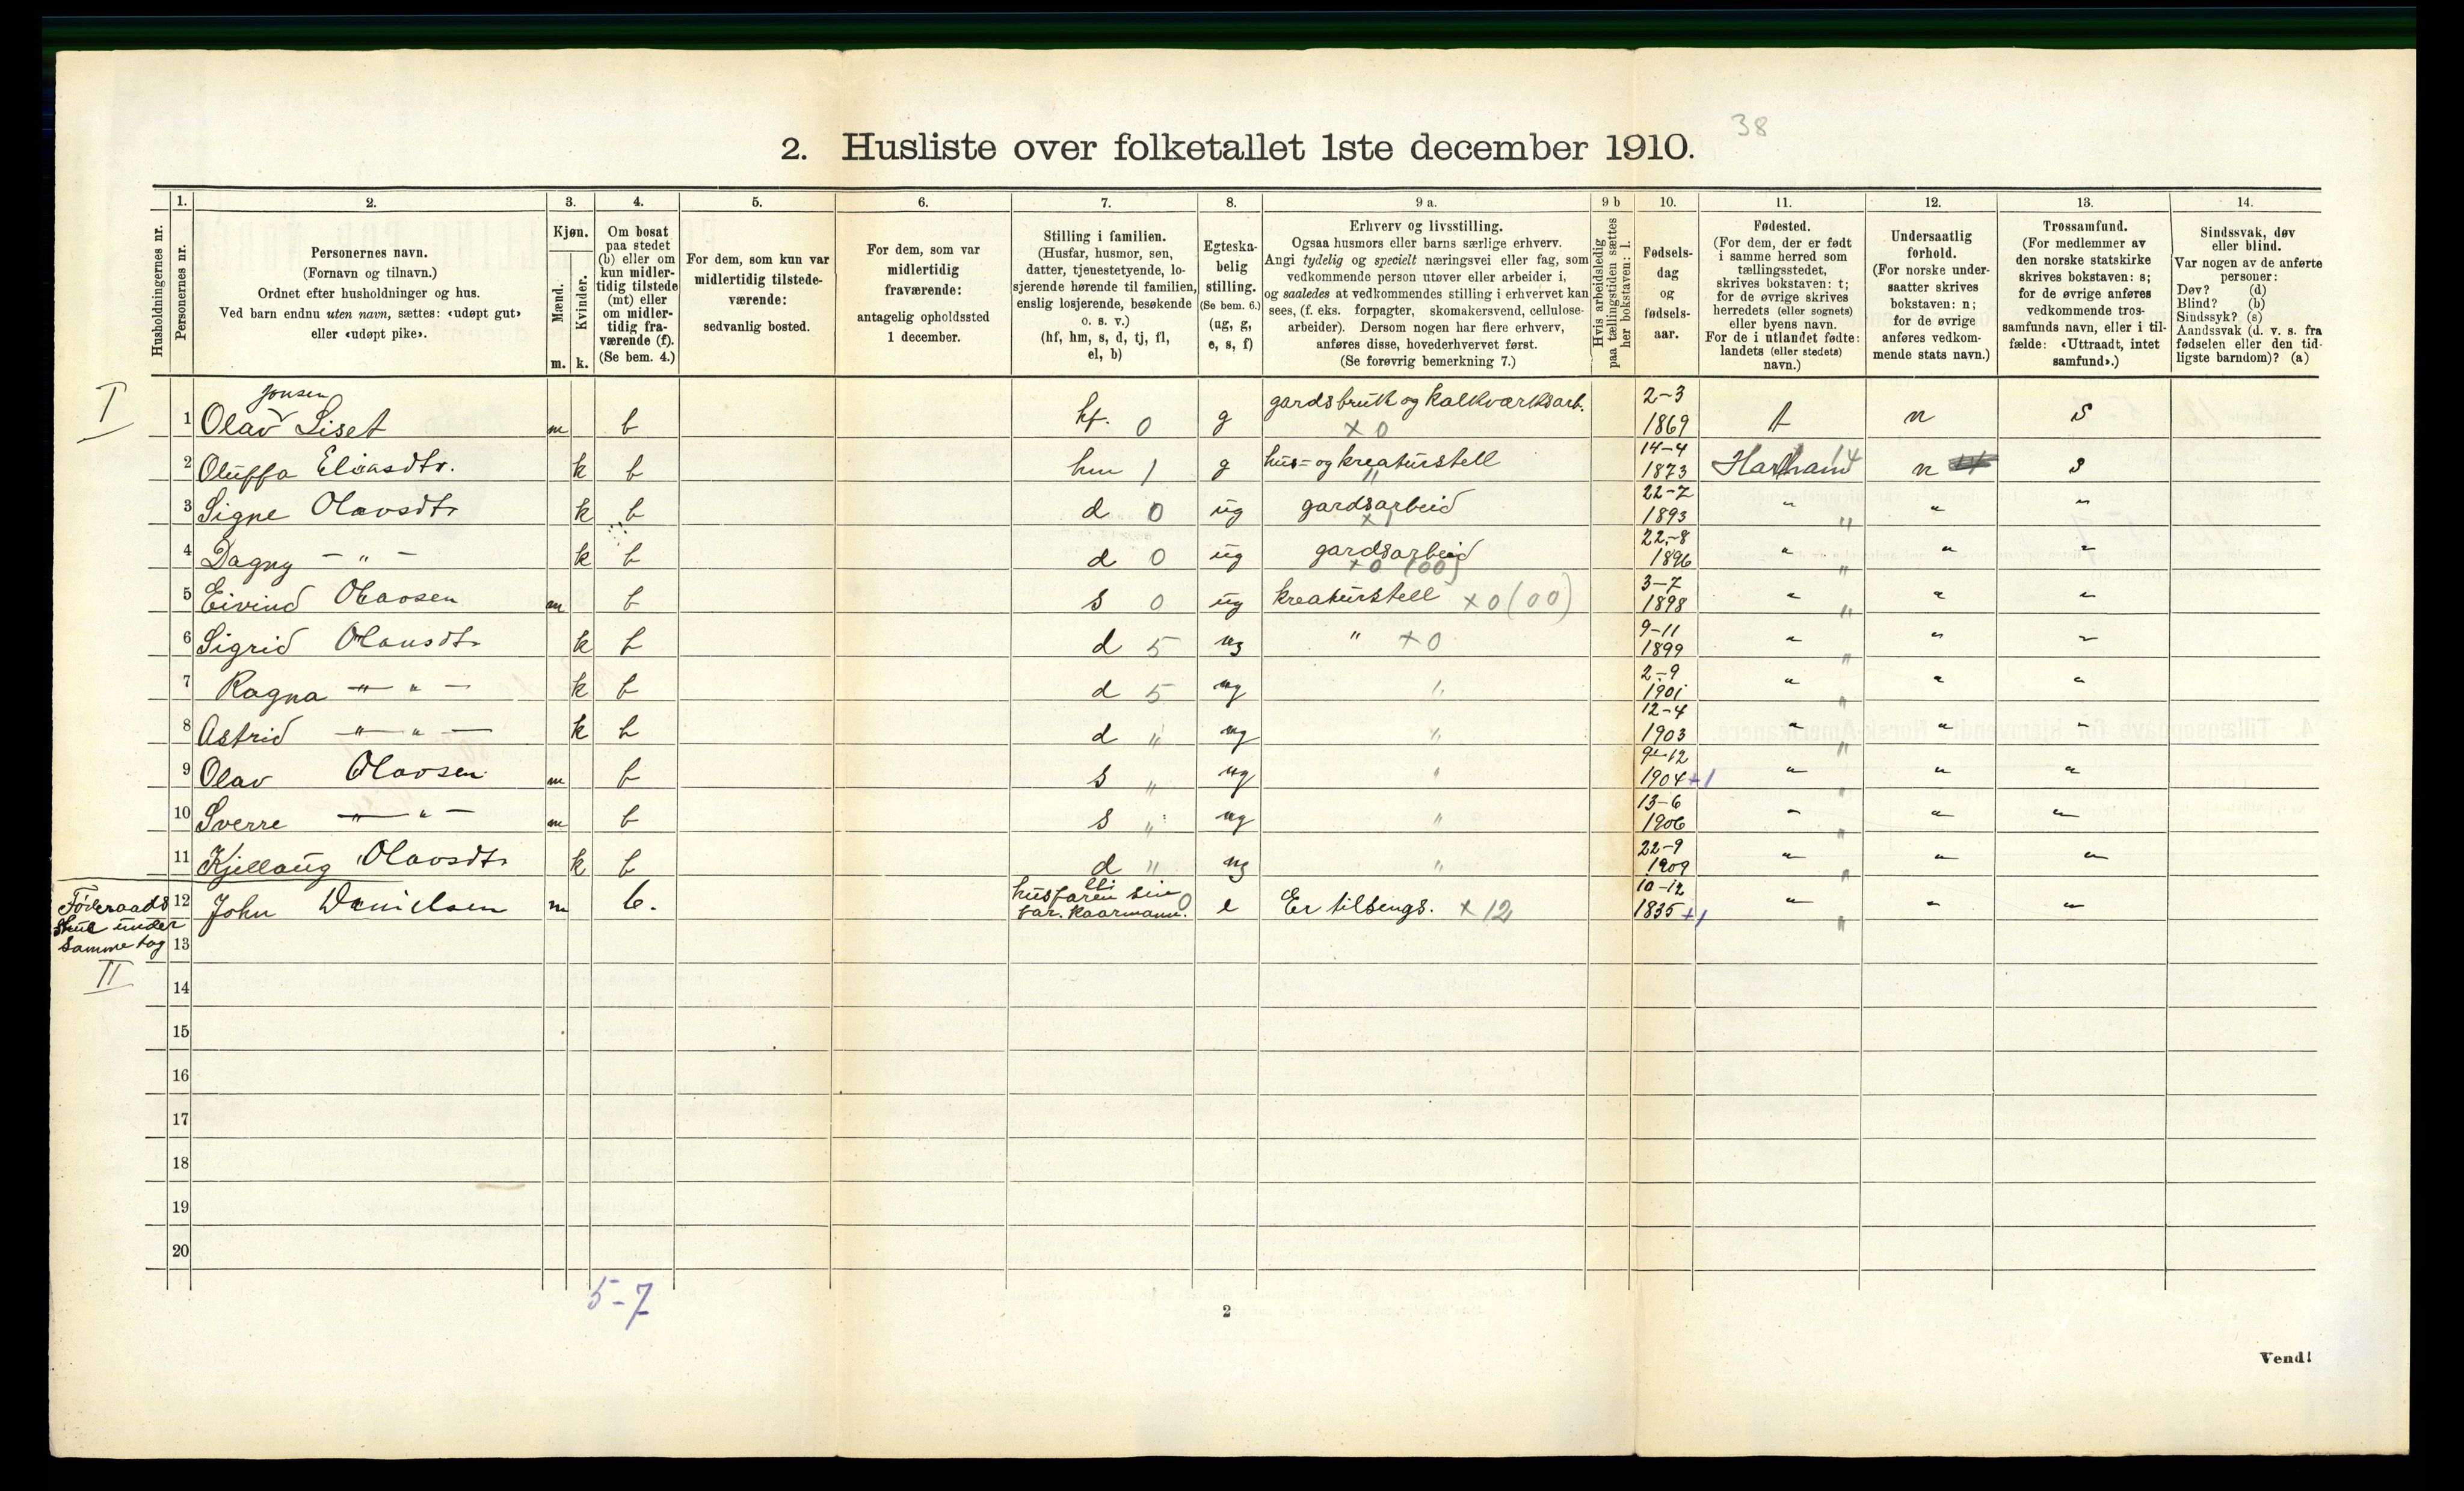 38
2. Husliste over folketallet 1ste december 1910.
Husholdningernes nr.
1. Personernes nr.
2. Personernes navn.
(Fornavn og tilnavn.)
Ordnet efter husholdninger og hus.
Ved barn endnu uten navn, sættes: «udøpt gut»
eller «udøpt pike».
3. Kjøn.
Mænd. m.
Kvinder. k.
4. Om bosat
paa stedet
(b) eller om
kun midler-
tidig tilstede
(mt) eller
om midler-
tidig fra-
værende (f).
(Se bem. 4.)
5. For dem, som kun var
midlertidig tilstede-
værende:
sedvanlig bosted.
6. For dem, som var
midlertidig
fraværende:
antagelig opholdssted
1 december.
7. Stilling i familien.
(Husfar, husmor, søn,
datter, tjenestetyende, lo-
sjerende hørende til familien,
enslig losjerende, besøkende
o. s. v.)
(hf, hm, s, d, tj, fl,
el, b)
8. Egteska-
belig
stilling.
(Se bem. 6.)
(ug, g,
e, s, f)
9 a. Erhverv og livsstilling.
Ogsaa husmors eller barns særlige erhverv.
Angi tydelig og specielt næringsvei eller fag, som
vedkommende person utøver eller arbeider i,
og saaledes at vedkommendes stilling i erhvervet kan
sees, (f. eks. forpagter, skomakersvend, cellulose-
arbeider). Dersom nogen har flere erhverv,
anføres disse, hovederhvervet først.
(Se forøvrig bemerkning 7.)
9 b Hvis arbeidsledig
paa tællingstiden sættes
her bokstaven: l.
10. Fødsels-
dag
og
fødsels-
aar.
11. Fødested.
(For dem, der er født
i samme herred som
tællingsstedet,
skrives bokstaven: t;
for de øvrige skrives
herredets (eller sognets)
eller byens navn.
For de i utlandet fødte:
landets (eller stedets)
navn.)
12. Undersaatlig
forhold.
(For norske under-
saatter skrives
bokstaven: n;
for de øvrige
anføres vedkom-
mende stats navn.)
13. Trossamfund.
(For medlemmer av
den norske statskirke
skrives bokstaven: s;
for de øvrige anføres
vedkommende tros-
samfunds navn, eller i til-
fælde: «Uttraadt, intet
samfund».)
14. Sindssvak, døv
eller blind.
Var nogen av de anførte
personer:
Døv? (d)
Blind? (b)
Sindssyk? (s)
Aandssvak (d. v. s. fra
fødselen eller den tid-
ligste barndom)? (a)
I
Jonsen
1 Olav Liset m b hf. 0 g gardsbruk og kalkværksarb. x 0 2-3 1869 t n s
2 Oluffa Eliasdtr. k b hm 1 g hus- og kreaturstell " 14-4 1873 14 n s
3 Signe Olavsdtr k b d 0 ug gardsarbeid x 1 22-7 1893 " " " "
4 Dagny - " - k b d 0 ug gardsarbeid x 0 (00) 22-8 1896 " " " "
5 Eivind Olavsen m b s 0 ug kreaturstell x 0 (00) 3-7 1898 " " " "
6 Sigrid Olavsdtr k b d 5 ug " x 0 9-11 1899 " " " "
7 Ragna - " - " - k b d 5 ug " 2-9 1901 " " " "
8 Astrid - " - " - k b d " ug " 12-4 1903 " " " "
9 Olav Olavsen m b s " ug " 9-12 1904 +1 " " " "
10 Sverre - " - " - m b s " ug " 13-6 1906 " " " "
11 Kjellaug Olavsdtr k b d " ug " 22-9 1909 " " " "
Føderaads
stue under
samme tag
II
12 John Danielsen m b. husfaren sin far. Kaarmann. 0 e Er tilsengs. x 12 10-12 1835 +1 " " " "
13
14
15
16
17
18
19
20
5-7
2
Vend!